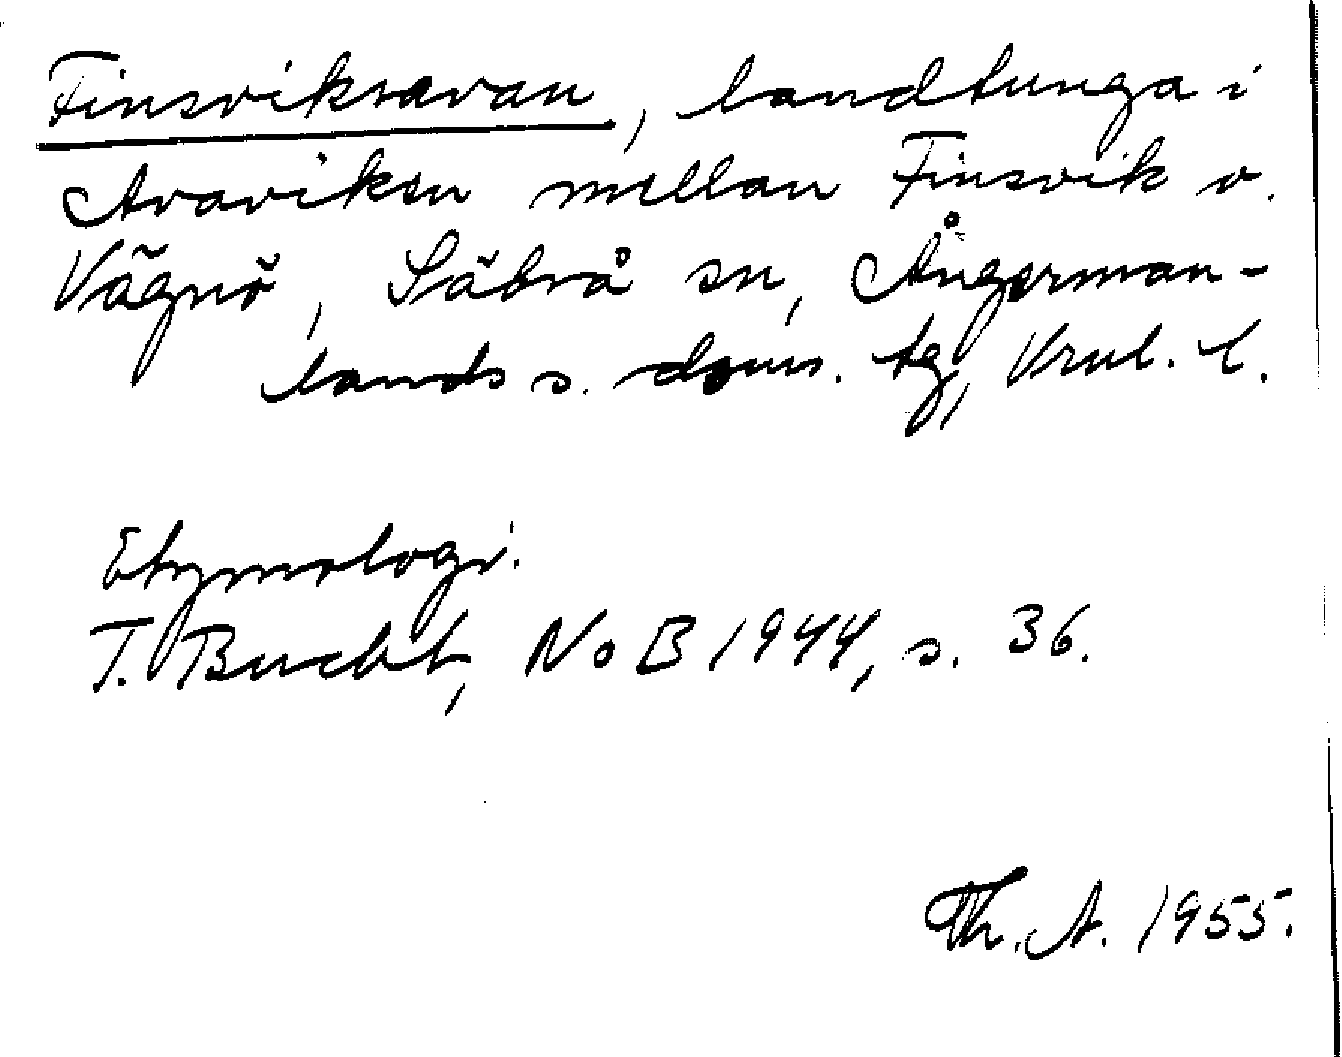 Finsviksavan, landtunga i
Avaviken mellan Finsvik o.
Vägnö, Säbrå sn, Ångerman-
lands s. doms. tg, Vrnl. l.
Etymologi:
T. Bucht, NoB 1944, s. 36.
Th. A. 1955.